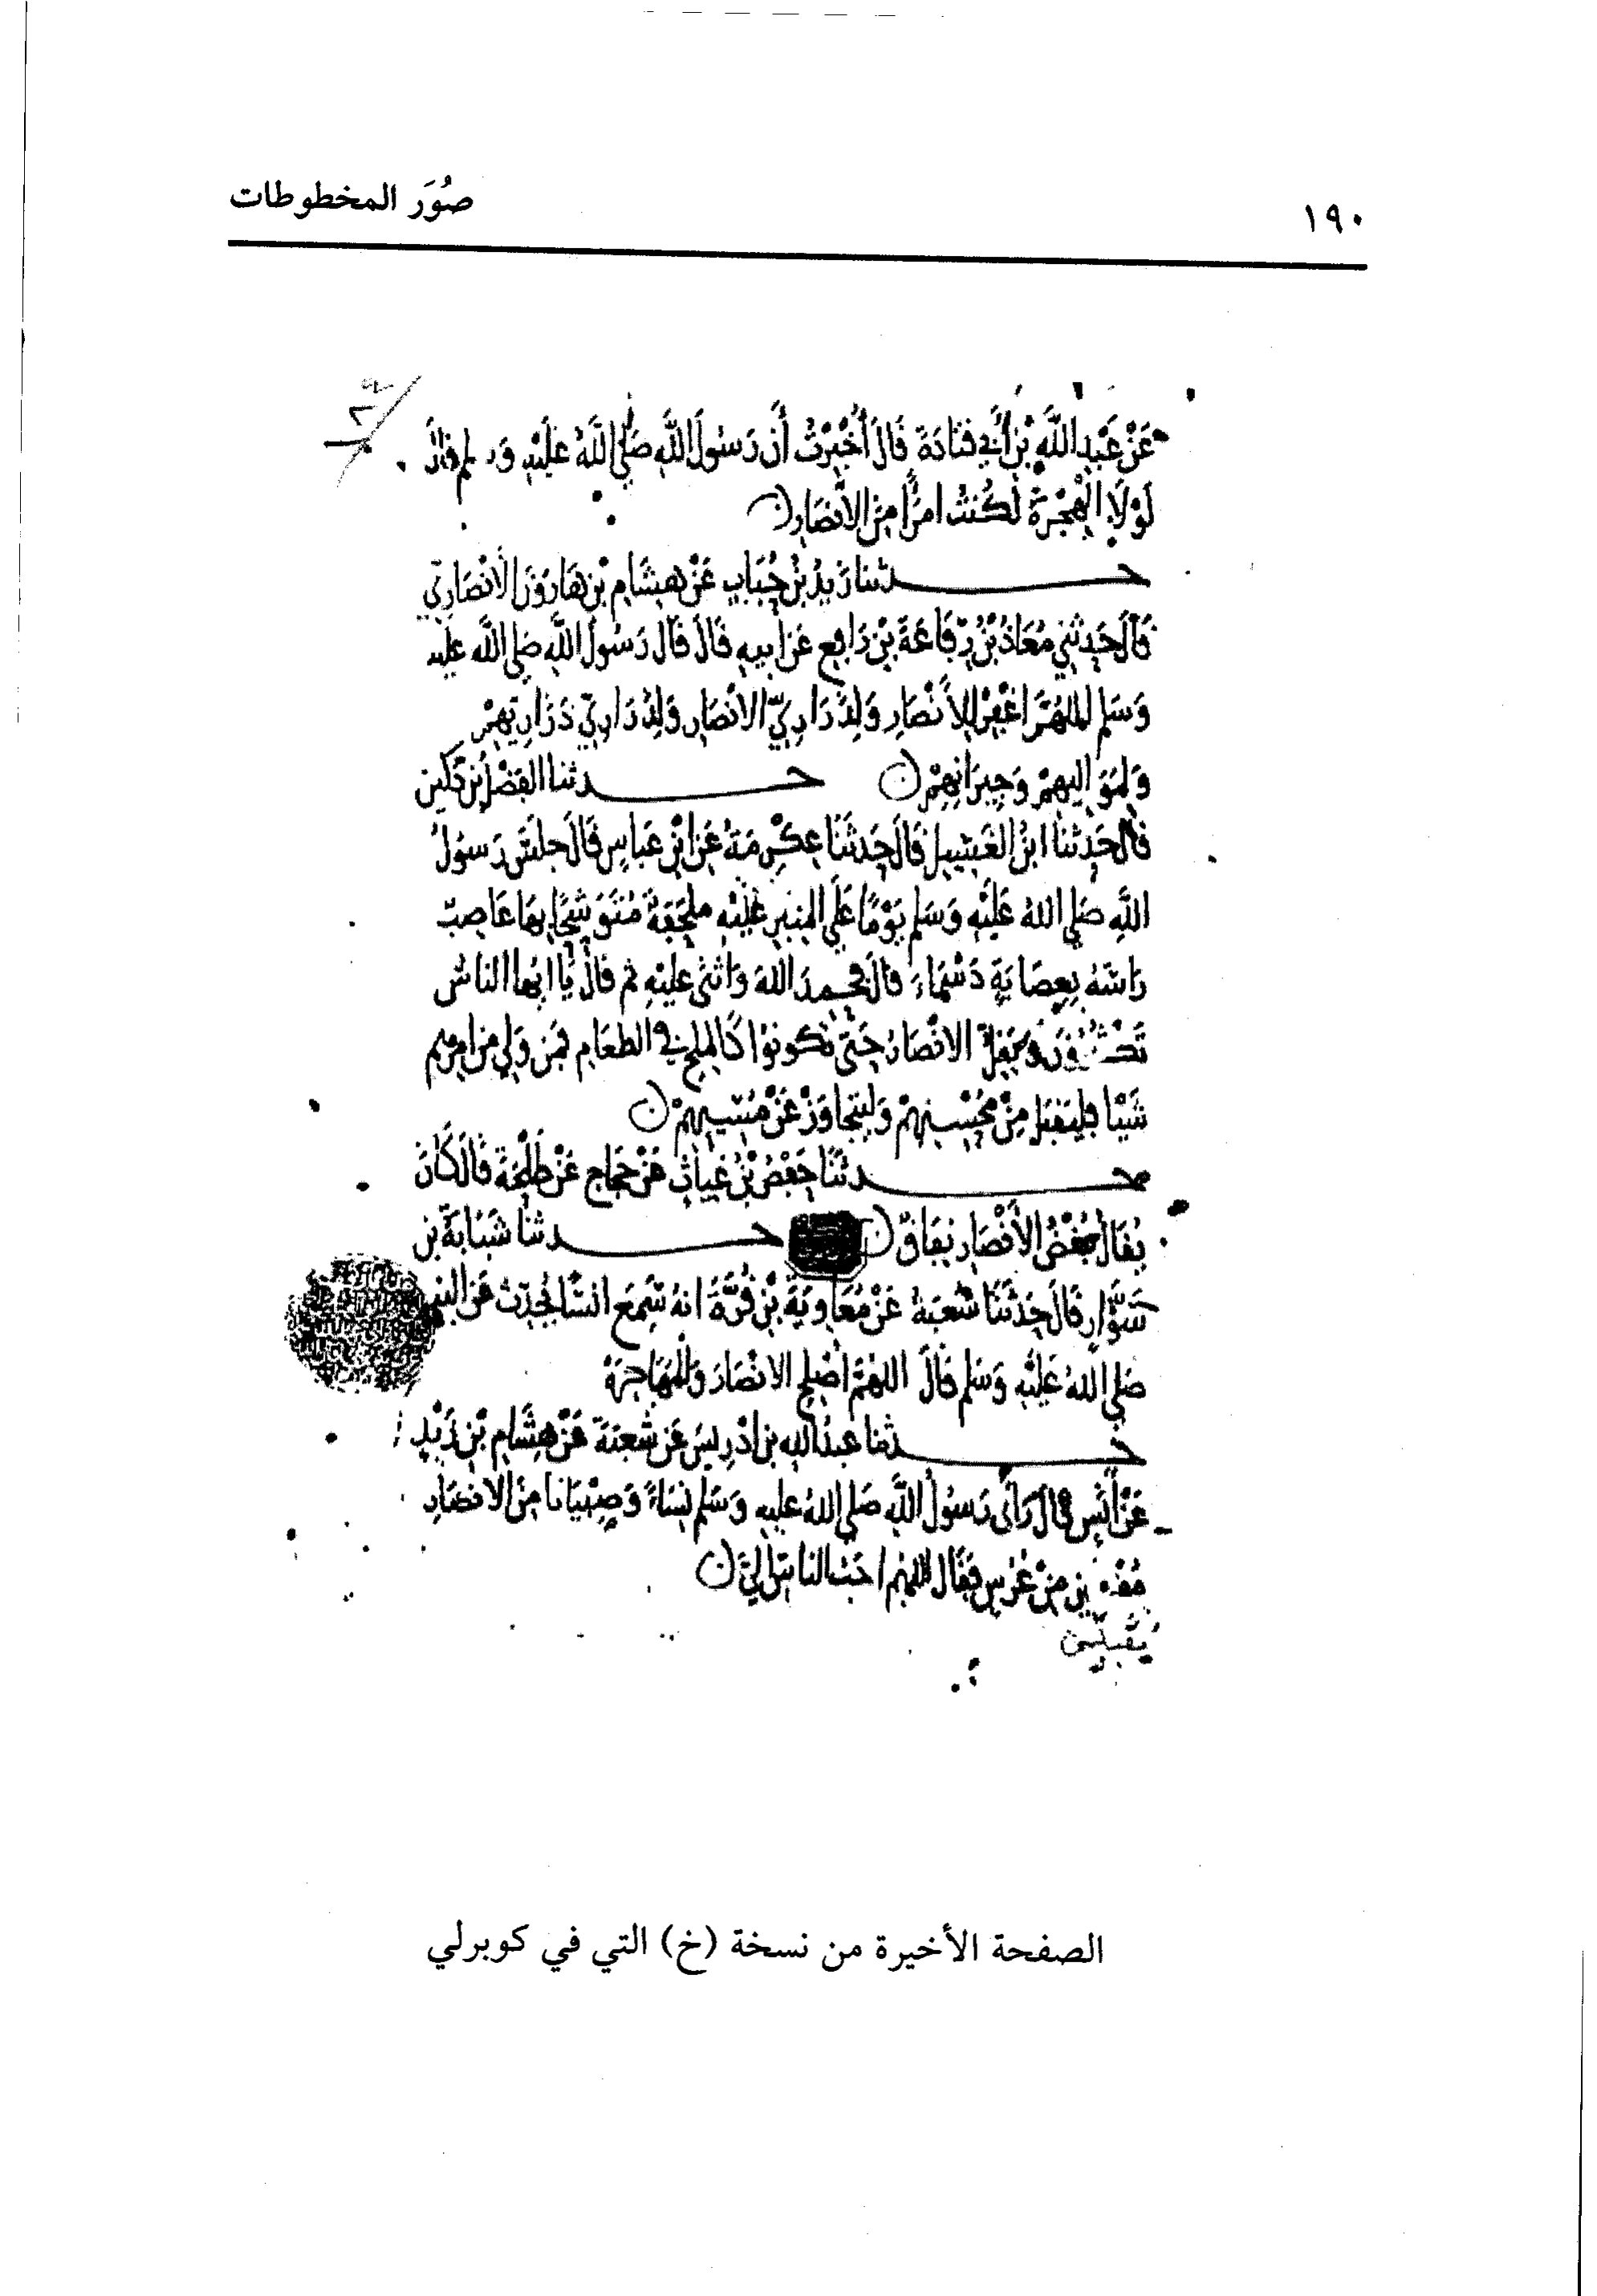 ١٩٠
صُوَر المخطوطات
عَنْ عَبْدِ اللَّهِ بْنِ أَبِي قَتَادَةَ قَالَ أُخْبِرْتُ أَنَّ رَسُولَ اللَّهِ صَلَّى اللَّهُ عَلَيْهِ وَسلم قَالَ
لَوْلَا الْهِجْرَةُ لَكُنْتُ امْرَأً مِنَ الأَنْصَارِ
حدثنا زَيْدُ بْنُ حُبَابٍ عَنْ هِشَامِ بْنِ هَارُونَ الْأَنْصَارِيِّ
قَالَ حَدَّثَنِي مُعَاذُ بْنُ رِفَاعَةَ بْنِ رَافِعٍ عَنْ أَبِيهِ قَالَ قَالَ رَسُولُ اللَّهِ صَلَّى اللَّه عليه
وَسَلم اللهُمَّ اغْفِرْ لِلْأَنْصَارِ وَلِذَرَارِيِّ الأنْصَارِ وَلِذَرَارِيِّ ذَرَارِيهِمْ
وَلِمَوَالِيهِمْ وَجِيرَانِهِمْ حدثنا الفَضْلُ بْنُ دُكَيْنٍ
قَالَ حَدَّثنا ابْنُ الغَسِيلِ قَالَ حَدَّثَنَا عِكْرِمَةُ عَنِ ابْنِ عَبَاسٍ قَالَ جلسَ رَسُولُ
اللَّهِ صَلى اللهُ عَلَيْهِ وَسَلم يَوْمًا عَلَى المِنبَرِ عَلَيْهِ مِلْحَفَةٌ مُتَوَشِّحًا بِهَا عَاصِبٌ
رَأسَهُ بِعِصَابَةٍ دَسْمَاءَ قالَ فحَمِدَ اللهَ وَأثنى عَلَيْهِ ثم قَالَ يَا ايها الناسُ
تَكْثُرُونَ وَيَقِلُّ الانْصَارُ حَتَّى يَكونوا كَالملحِ في الطعَامِ فَمَن وَلِيَ مِن امرهم
شَيْئا فليَقبَل مِنْ مُحْسِنِهِمْ وَليتَجاوَزْ عَنْ مُسِيئِهِمْ
حدثَنَا حَفْصُ بْنُ غِيَاثٍ عَنْ حَجاجٍ عَنْ طَلْحَةَ قَالَ كَانَ
يُقَالُ بُغْضُ الْأَنْصَارِ نِفَاقٌ حدثنَا شَبَابَةُ بْنُ
سَوَّارٍ قَالَ حَدَّثَنَا شُعْبَةُ عَنْ مُعَاوِيَةَ بْنِ قُرَّةَ انهُ سَمِعَ انَسًا يُحَدِّثُ عَنِ النبي
صَلى اللهُ عَلَيْهِ وَسَلم قَالَ اللهُمَّ أَصْلِحِ الانْصَارَ وَالْمُهَاجِرَةَ
حدثنا عَبْدُ اللهِ بن ادْرِيسَ عَن شُعْبَةَ عَنْ هِشَامِ بْنِ زَيْدٍ
عَنْ أَنَسٍ قَالَ رَأَى رَسُولُ اللَّهِ صَلى اللهُ عليهِ وَسَلم نِسَاءً وَصِبْيَانًا مِنَ الانصَارِ
مُقْبِلِينَ مِنْ عُرْسٍ فَقَالَ اللهُم احَبُّ الناسِ إِلَيَّ
الصفحة الأخيرة من نسخة (خ) التي في كوبرلي